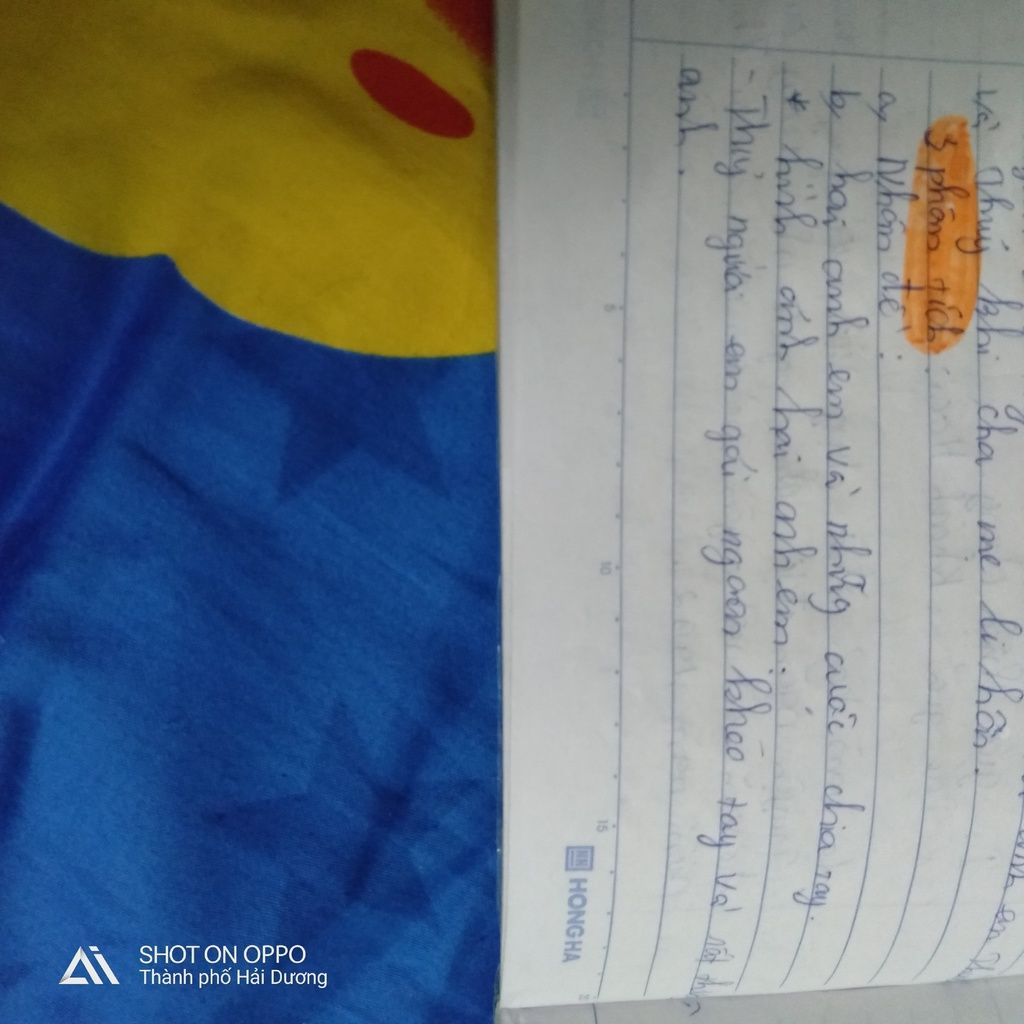 và Thuỷ khi cha mẹ li hôn.
3 phân tích.
a, Nhan đề:
b, hai anh em và những cuộc chia tay.
* hình ảnh hai anh em:
- Thuỷ người em gái ngoan khéo tay và rất
anh.
5
10
15
HN HONGHA
SHOT ON OPPO
Thành phố Hải Dương